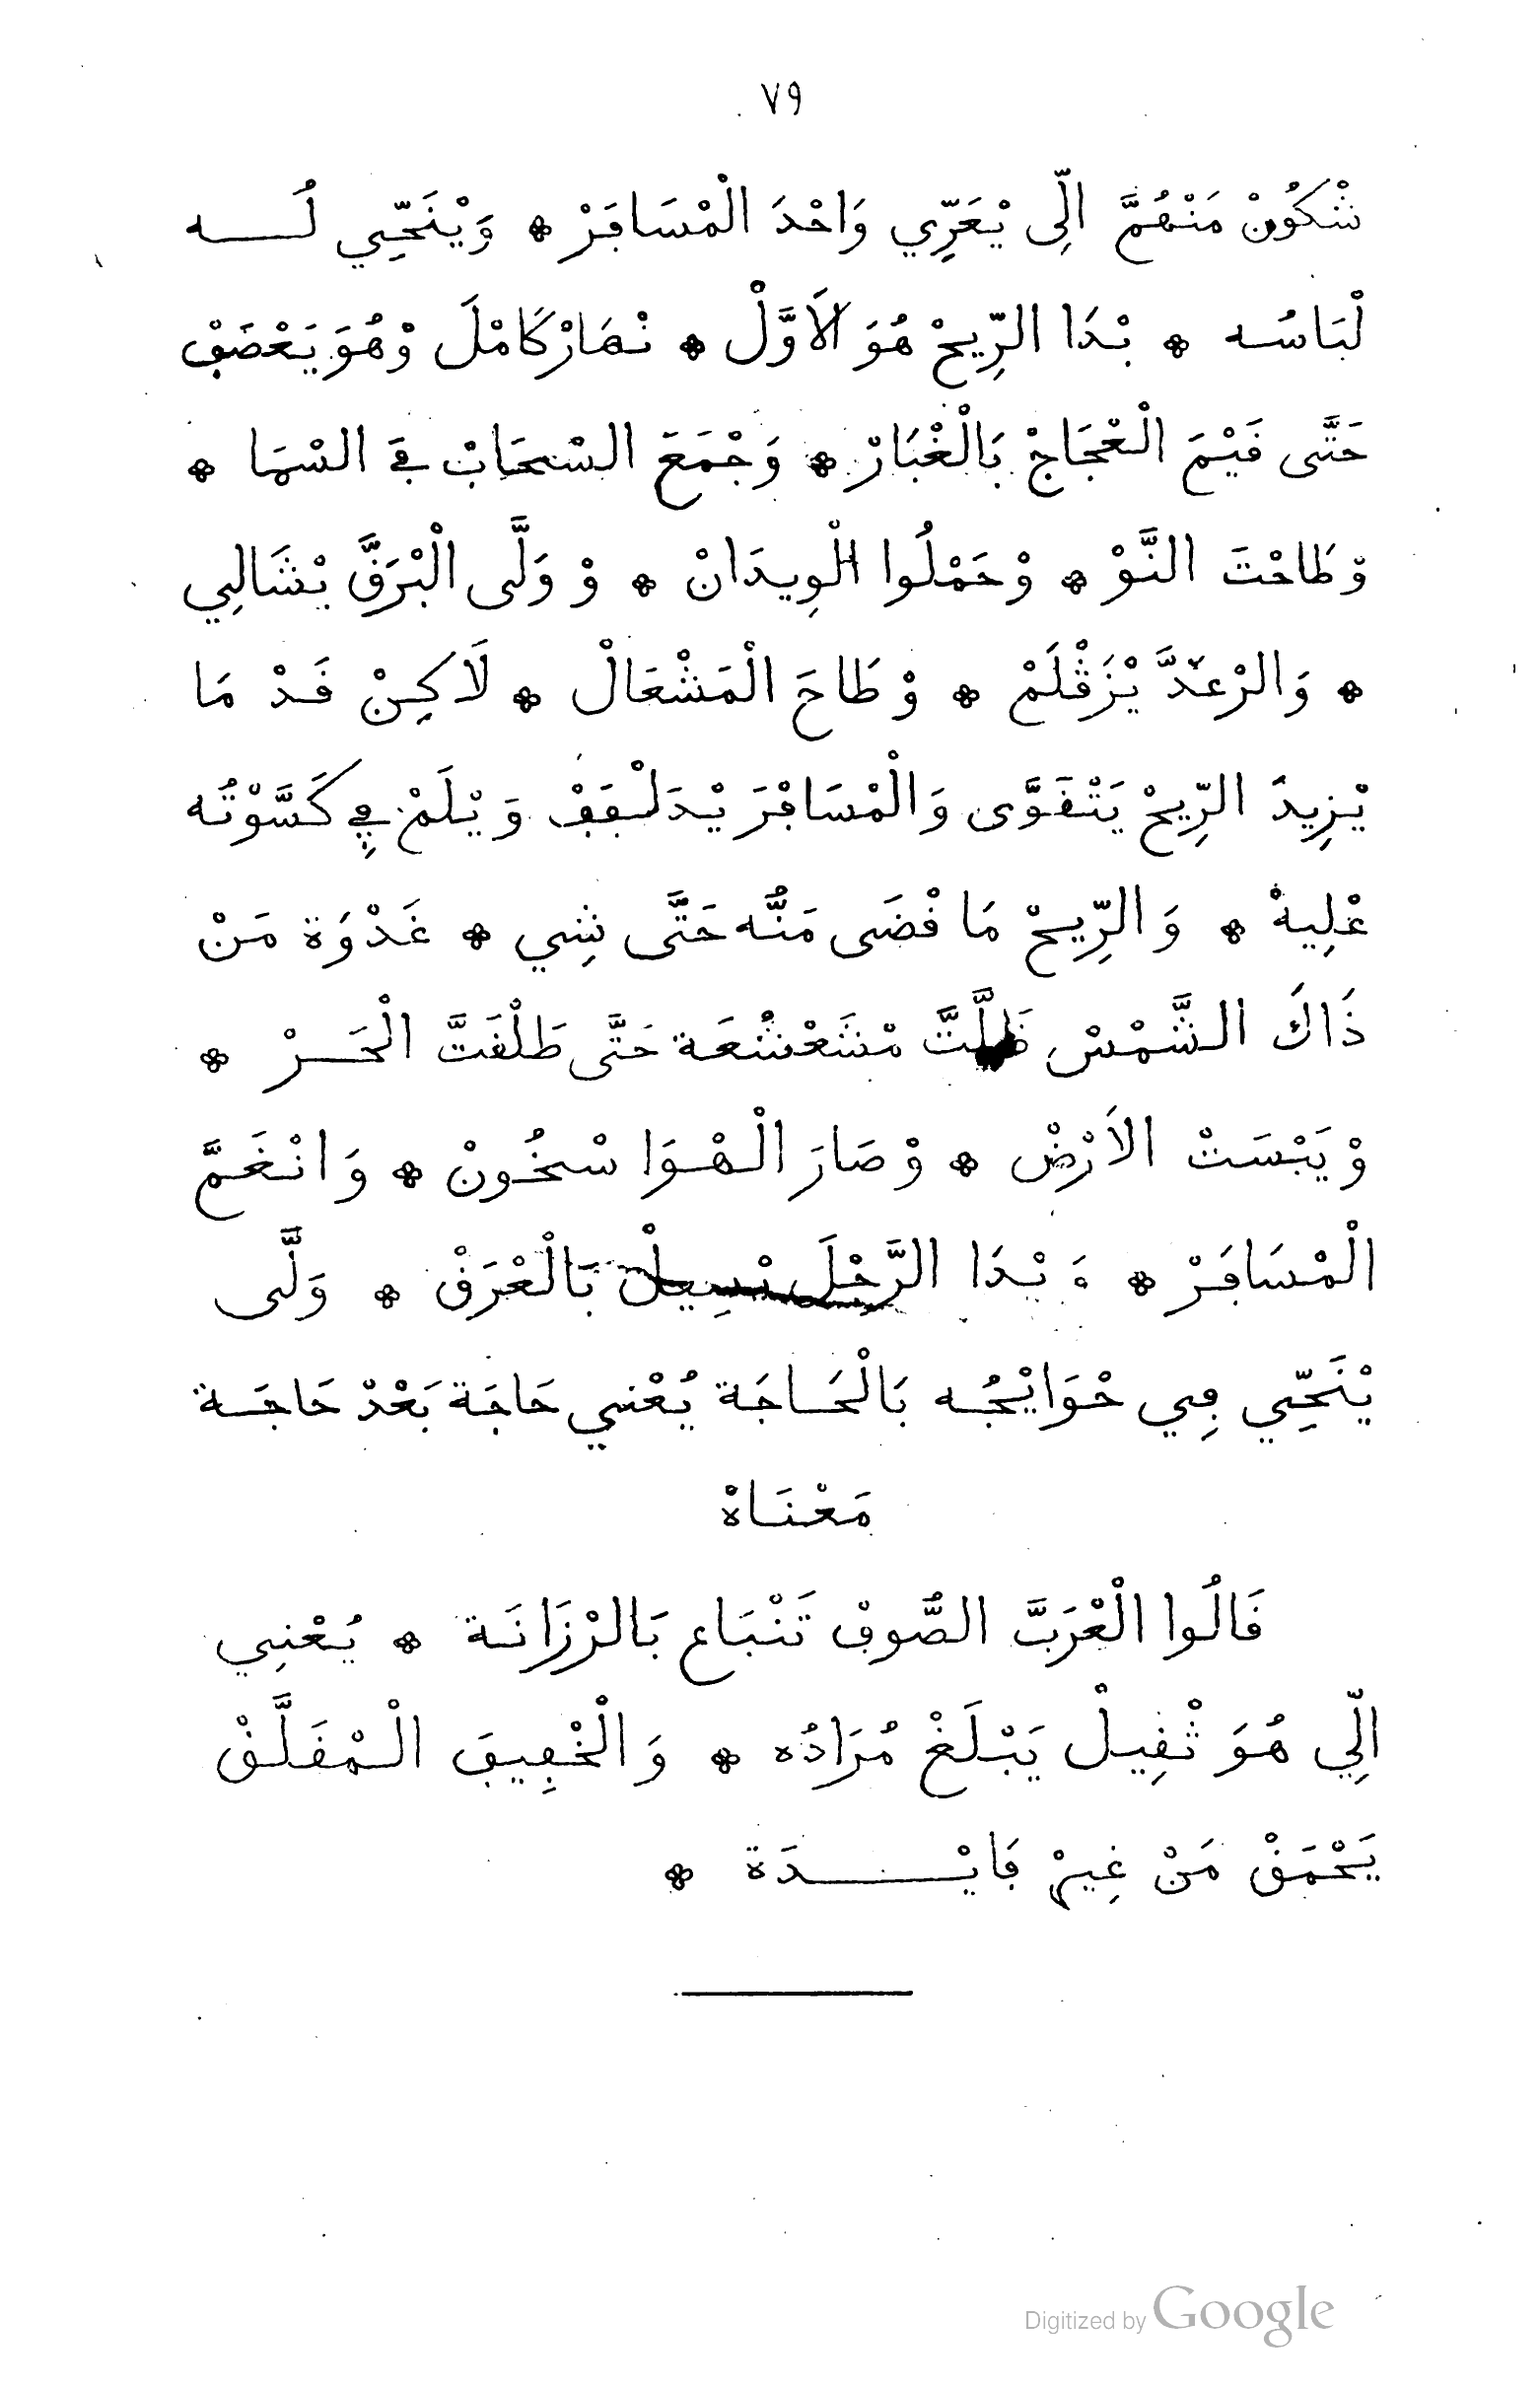 ٧٩
شْكُونْ مَنْهُمَّ الِّى يْعَرِّي وَاحْدَ الْمْسَاڢَرْ * وَيْنَحِّي لُـــه
لْبَاسُه * بْدَا الرِّيحْ هُوَ الَاوَّلْ * نْهَارْ كَامْلَ وْهُوَ يَعْضَڢْ
حَتَّى فَيْمَ الْعْجَاجْ بَالْغْبَارْ * وَجْمَعَ السْحَابْ ڢَى السْمَا *
وْطَاحْتَ النَّوْ * وْحَمْلُوا الْوِيدَانْ * وْ وَلَّى الْبْرَقَّ يْشَالِي
* وَالرْعَدَّ يْزَڤْلَمْ * وْطَاحَ الْمَشْعَالْ * لَاكِنْ فَدْ مَا
يْزِيدَ الرِّيحْ يَتْفَوَّى وَالْمْسَاڢْرَ يْدَلْڢَڢْ وَيْلَمْ ڢِي كَسَّوْتُه
عْلِيهْ * وَالرِّيحْ مَا فْضَى مَنُّه حَتَّى شِي * غَدْوَة مَنْ
ذَاكَ الشَّمْسْ ظَلَّتَّ مْشَعْشْعَة حَتَّى طَلْفَتَّ الْحَـــرْ *
وْيَبْسَتْ الاَرْضْ * وْصَارَ الْهْوَا سْخُونْ * وَانْغَمَّ
الْمْسَاڢَرْ * وَبْدَا الرَّجْلَ يْسِيلْ بَالْعْرَقْ * وَلَّى
يْنَحِّي ڢِي حْوَايْجُه بَالْحَاجَة يُعْنِي حَاجَة بَعْدْ حَاجَة
مَعْنَاهْ
فَالُوا الْعْرَبَّ الصُّوڢْ تَنْبَاع بَالرْزَانَة * يُعْنِي
الِّي هُوَ ثْفِيلْ يَبْلَغْ مُرَادُه * وَالْخْڢِيڢَ الْمْفَلَّقْ
يَحْمَقْ مَنْ غِيرْ ڢَايْـــدَة *
Digitized by Google